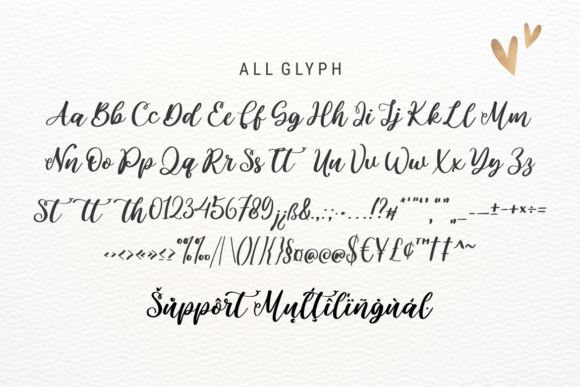 ALL GLYPH
Aa Bb Cc Dd Ee Ff Gg Hh Ii Jj Kk Ll Mm
Nn Oo Pp Qq Rr Ss Tt Uu Vv Ww Xx Yy Zz
St tt th 0123456789¡¿ß&.,:;·…!?#"'"‘’‚“”„_-–—±-+×÷=
‹›<>«»≤≥°%‰/|\()[]{}§¤@@@$€¥£¢™†‡^~
Šůppôrt Mųļţįlïñġùál